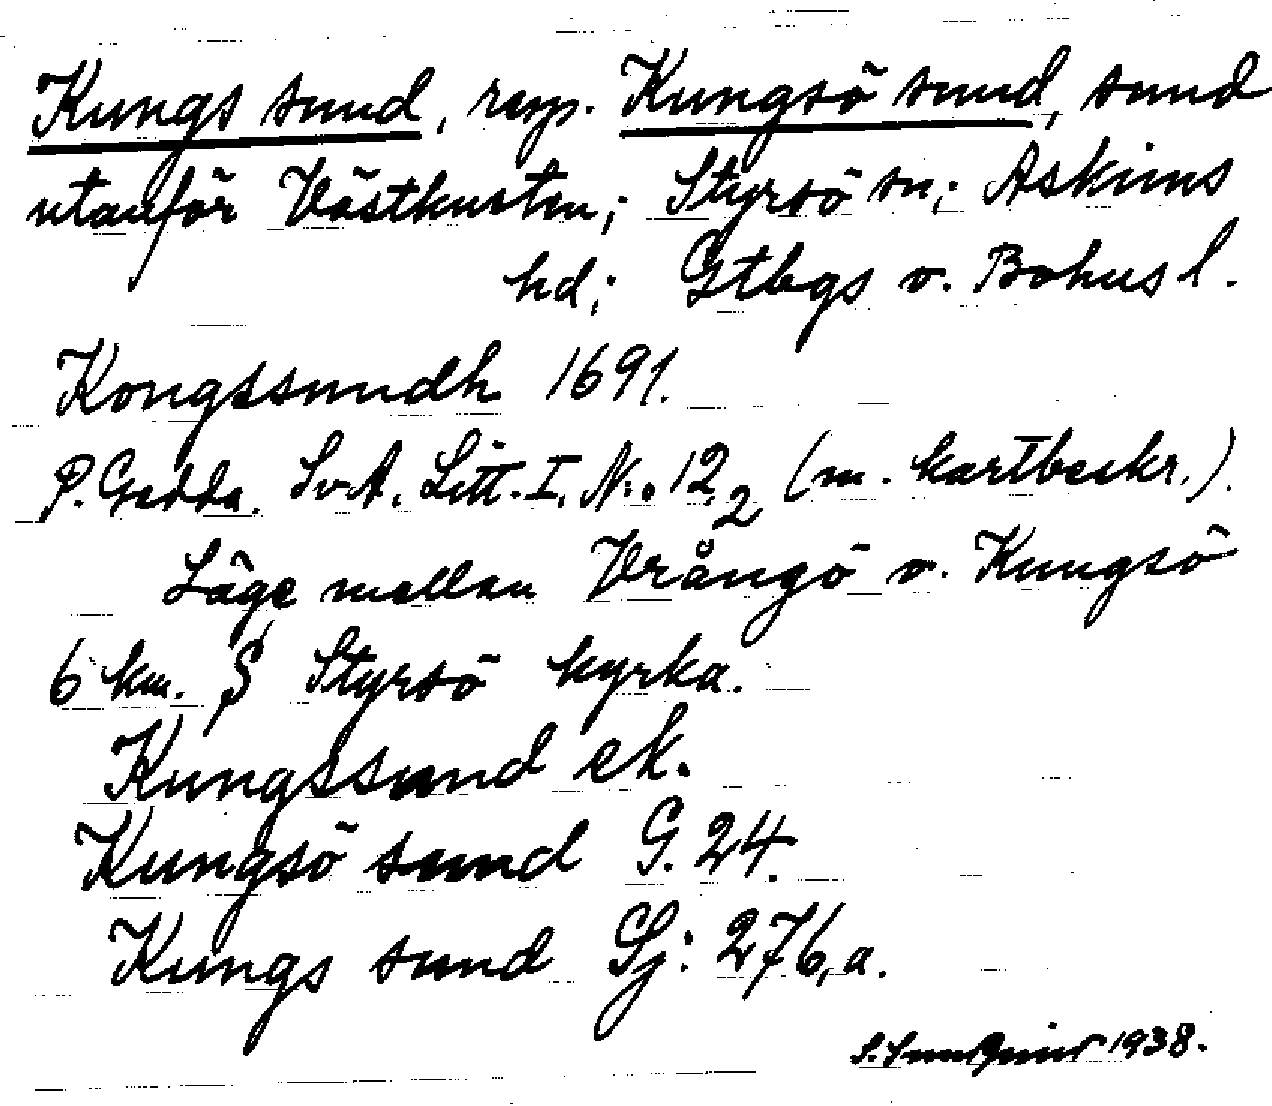 Kungs sund, resp. Kungsö sund, sund
utanför Västkusten; Styrsö sn; Askims
hd; Gtbgs o. Bohus l.
Kongssundh 1691.
P. Gedda. SvA. Litt. I. N:o 12,2 (m. kartbeskr.).
Läge mellan Vrångö o. Kungsö
6 km. S Styrsö kyrka.
Kungssund ek.
Kungsö sund G. 24.
Kungs sund Sj: 276,a.
1938.